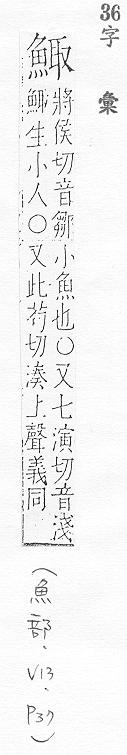 36字 彙
鯫 將侯切音鄒小魚也〇又七演切音淺
鯫生小人〇又此苟切湊上聲義同
(魚部.V13.P37)